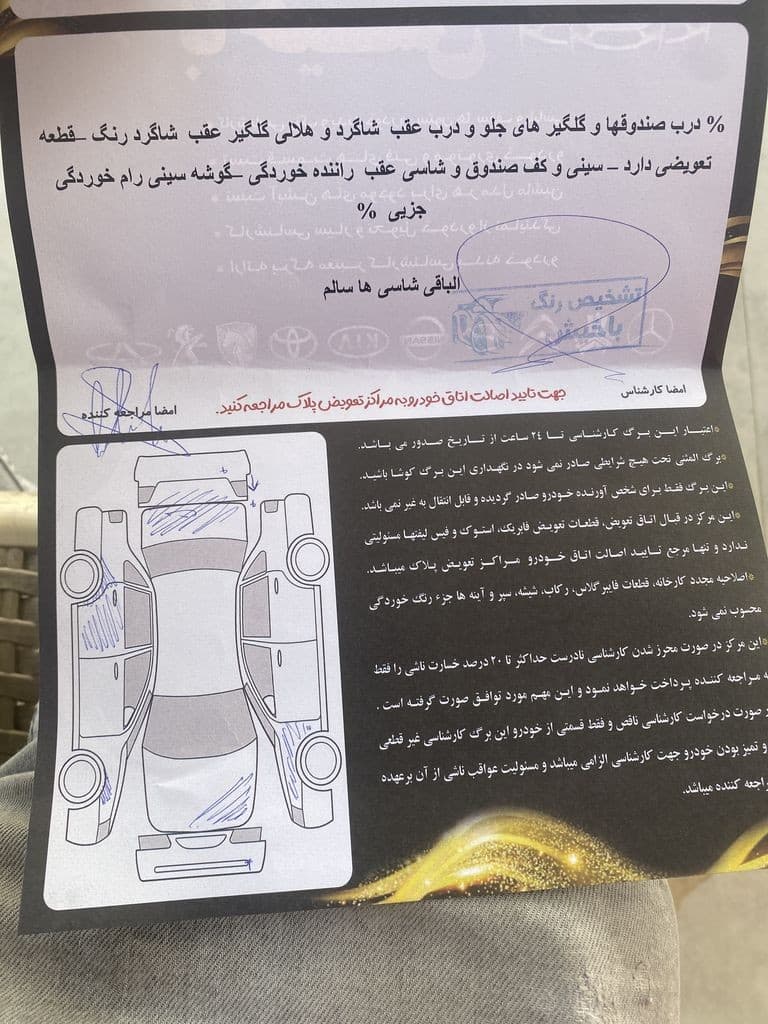 % درب صندوقها و گلگیر های جلو و درب عقب شاگرد و هلالی گلگیر عقب شاگرد رنگ –قطعه
تعویضی دارد – سینی و کف صندوق و شاسی عقب راننده خوردگی –گوشه سینی رام خوردگی
جزیی %
الباقی شاسی ها سالم
تشخیص رنگ
KIA
NISSAN
امضا کارشناس
جهت تایید اصالت اتاق خودرو به مراکز تعویض پلاک مراجعه کنید.
امضا مراجعه کننده
*اعتبار این برگ کارشناسی تا ۲۴ ساعت از تاریخ صدور می باشد.
*برگ المثنی تحت هیچ شرایطی صادر نمی شود در نگهداری این برگ کوشا باشید.
*این برگ فقط برای شخص آورنده خودرو صادر گردیده و قابل انتقال به غیر نمی باشد.
*این مرکز در قبال اتاق تعویض، قطعات تعویض فابریک، استوک و فیس لیفتها مسئولیتی
ندارد و تنها مرجع تایید اصالت اتاق خودرو مراکز تعویض پلاک میباشد.
*اصلاحیه مجدد کارخانه، قطعات فایبرگلاس، رکاب، شیشه، سپر و آینه ها جزء رنگ خوردگی
محسوب نمی شود.
*این مرکز در صورت محرز شدن کارشناسی نادرست حداکثر تا ۲۰ درصد خسارت ناشی را فقط
به مراجعه کننده پرداخت خواهد نمود و این مهم مورد توافق صورت گرفته است .
صورت درخواست کارشناسی ناقص و فقط قسمتی از خودرو این برگ کارشناسی غیر قطعی
و تمیز بودن خودرو جهت کارشناسی الزامی میباشد و مسئولیت عواقب ناشی از آن برعهده
مراجعه کننده میباشد.